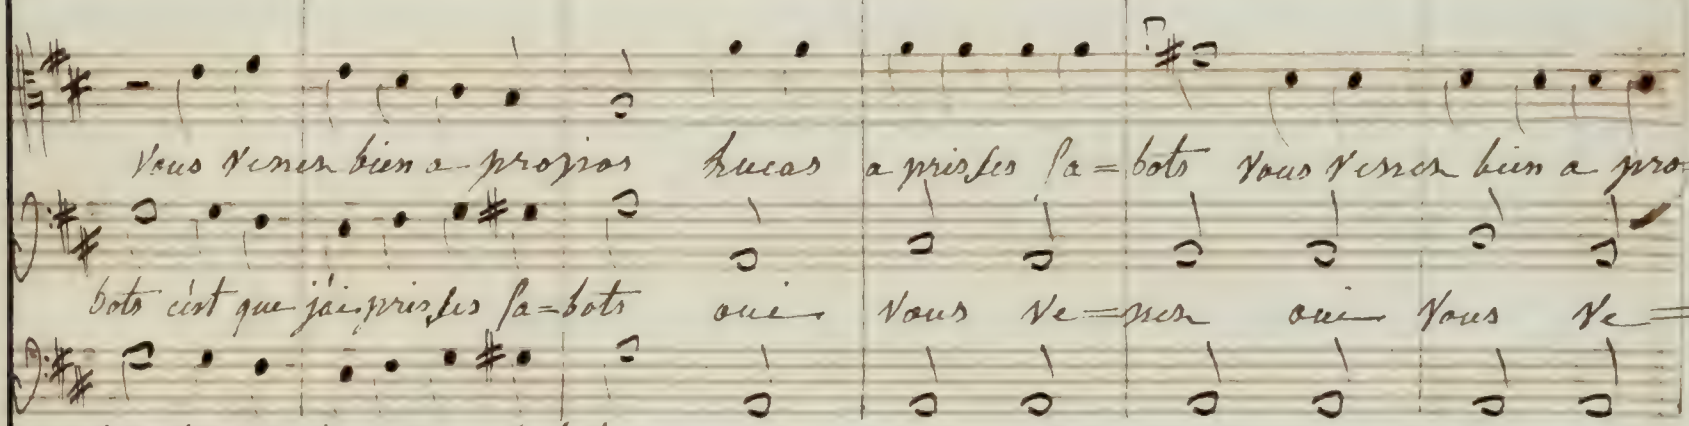 Vous Venes bien a propos Lucas a pris ses sa=bots Vous Venes bien a pro
bots c'est que j'ai pris ses sa=bots oui Vous Ve=nes oui Vous Ve=